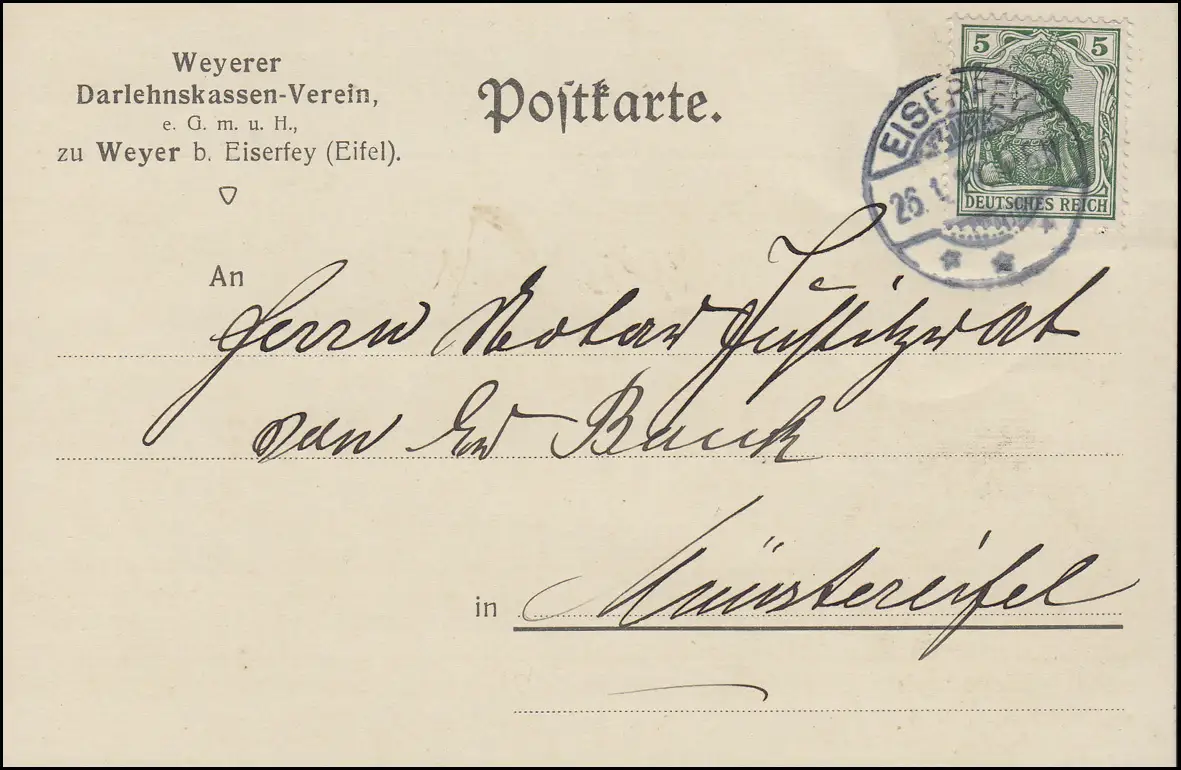 Weyerer
Darlehnskassen-Verein,
e. G. m. u. H.,
zu Weyer b. Eiserfey (Eifel).
Postkarte.
5 5
EISERFEY
26.1.
DEUTSCHES REICH
An
Herrn Notar Justizrat
von
in Münstereifel